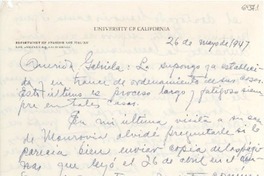 UNIVERSITY OF CALIFORNIA
DEPARTMENT OF SPANISH AND ITALIAN
26 de mayo de 1947
Querida Gabriela: La supongo ya estableci-
da y en trance de ordenamiento de sus cosas.
Este último es proceso largo y fatigoso siem-
pre en tales casos.
En mi última visita a su casa
de Monrovia olvidé preguntarle si le
parecía bien enviar copia de las pági-
nas que leyó el 26 de abril en el